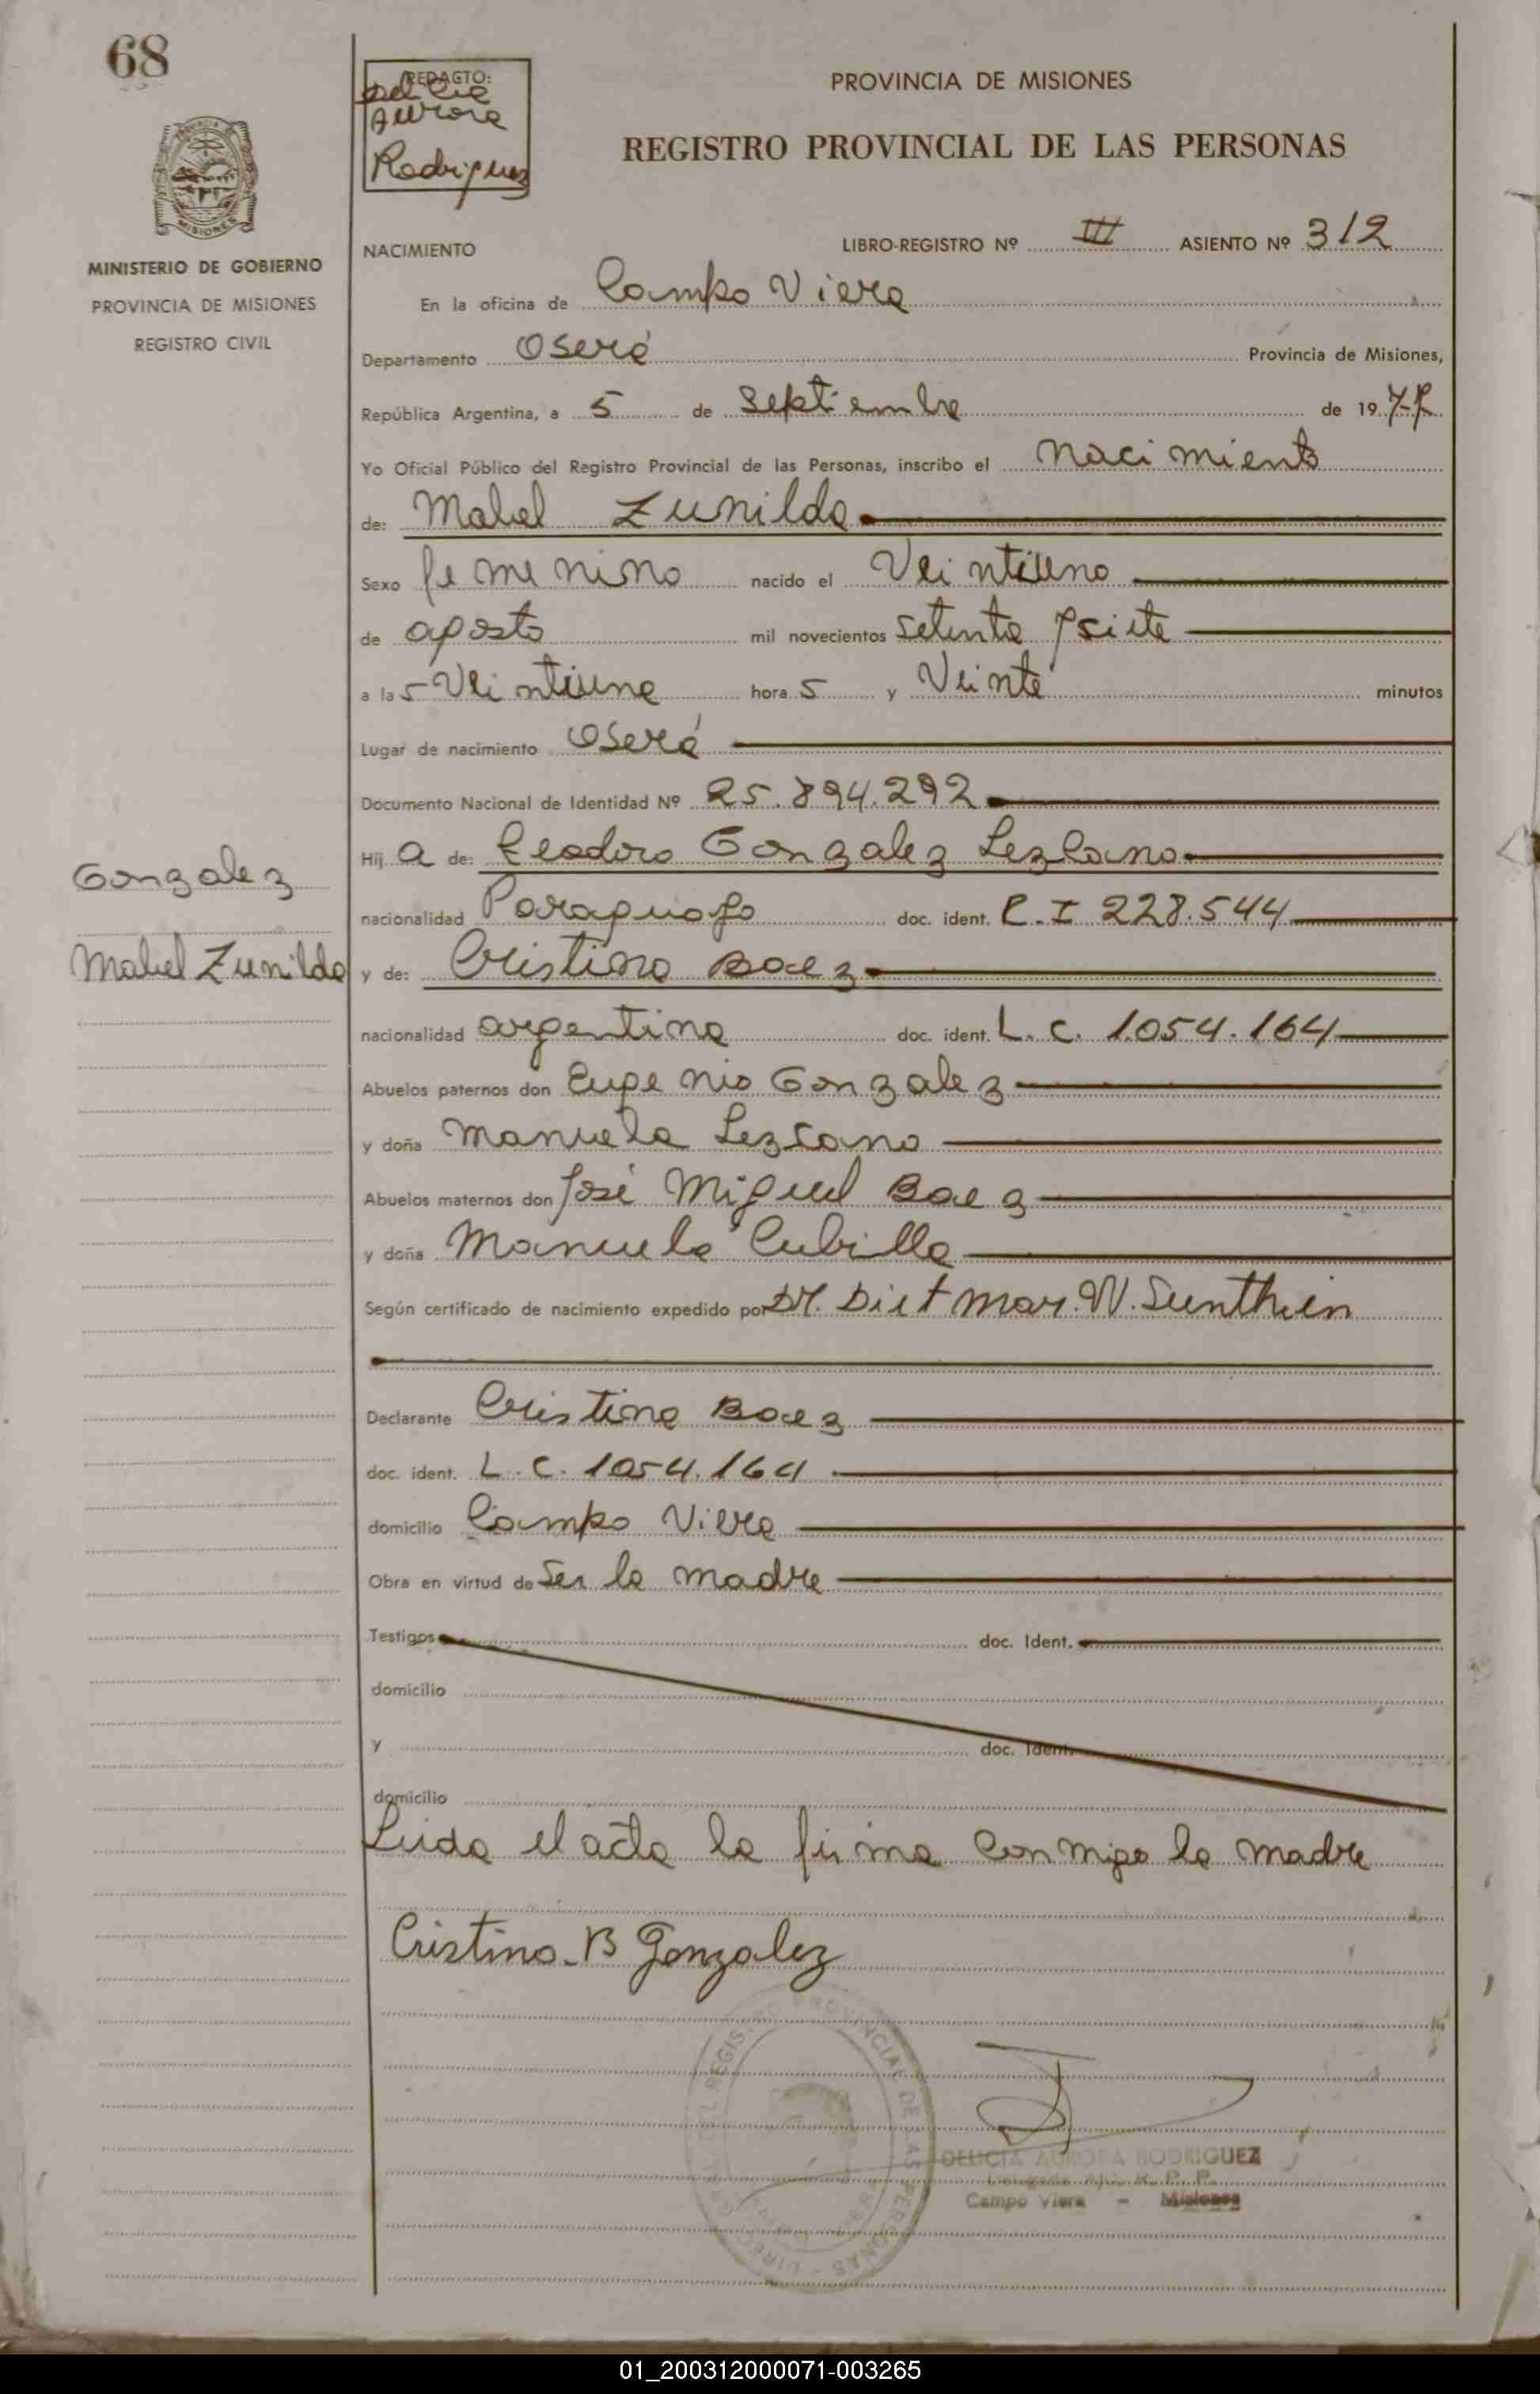 68
REDACTO:
Delicia
Aurora
Rodriguez
PROVINCIA DE MISIONES
REGISTRO PROVINCIAL DE LAS PERSONAS
MISIONES
MINISTERIO DE GOBIERNO
PROVINCIA DE MISIONES
REGISTRO CIVIL
NACIMIENTO
LIBRO-REGISTRO Nº III ASIENTO Nº 312
En la oficina de Campo Viera
Departamento Oberá Provincia de Misiones,
República Argentina, a 5 de Septiembre de 1977
Yo Oficial Público del Registro Provincial de las Personas, inscribo el nacimiento
de: Mabel Zunilda
Sexo femenino nacido el Veintiuno
de agosto mil novecientos setenta y siete
a las Veintiuna horas y Veinte minutos
Lugar de nacimiento Oberá
Documento Nacional de Identidad Nº 25.894.292
Hija de: Leodoro Gonzalez Lezcano
Gonzalez
Mabel Zunilda
nacionalidad Paraguayo doc. ident. C.I 228.544
y de: Cristina Baez
nacionalidad argentina doc. ident. L.C. 1.054.164
Abuelos paternos don Eugenio Gonzalez
y doña Manuela Lezcano
Abuelos maternos don José Miguel Baez
y doña Manuela Cubilla
Según certificado de nacimiento expedido por Dr. Dietmar. W. Sunthein
Declarante Cristina Baez
doc. ident. L.C. 1.054.164
domicilio Campo Viera
Obra en virtud de Ser la madre
Testigos doc. Ident.
domicilio
y doc. Ident.
domicilio
Leida el acta la firma conmigo la madre
Cristina. B Gonzalez
DELICIA AURORA RODRIGUEZ
R. P. P.
Campo Viera - Misiones
01_200312000071-003265